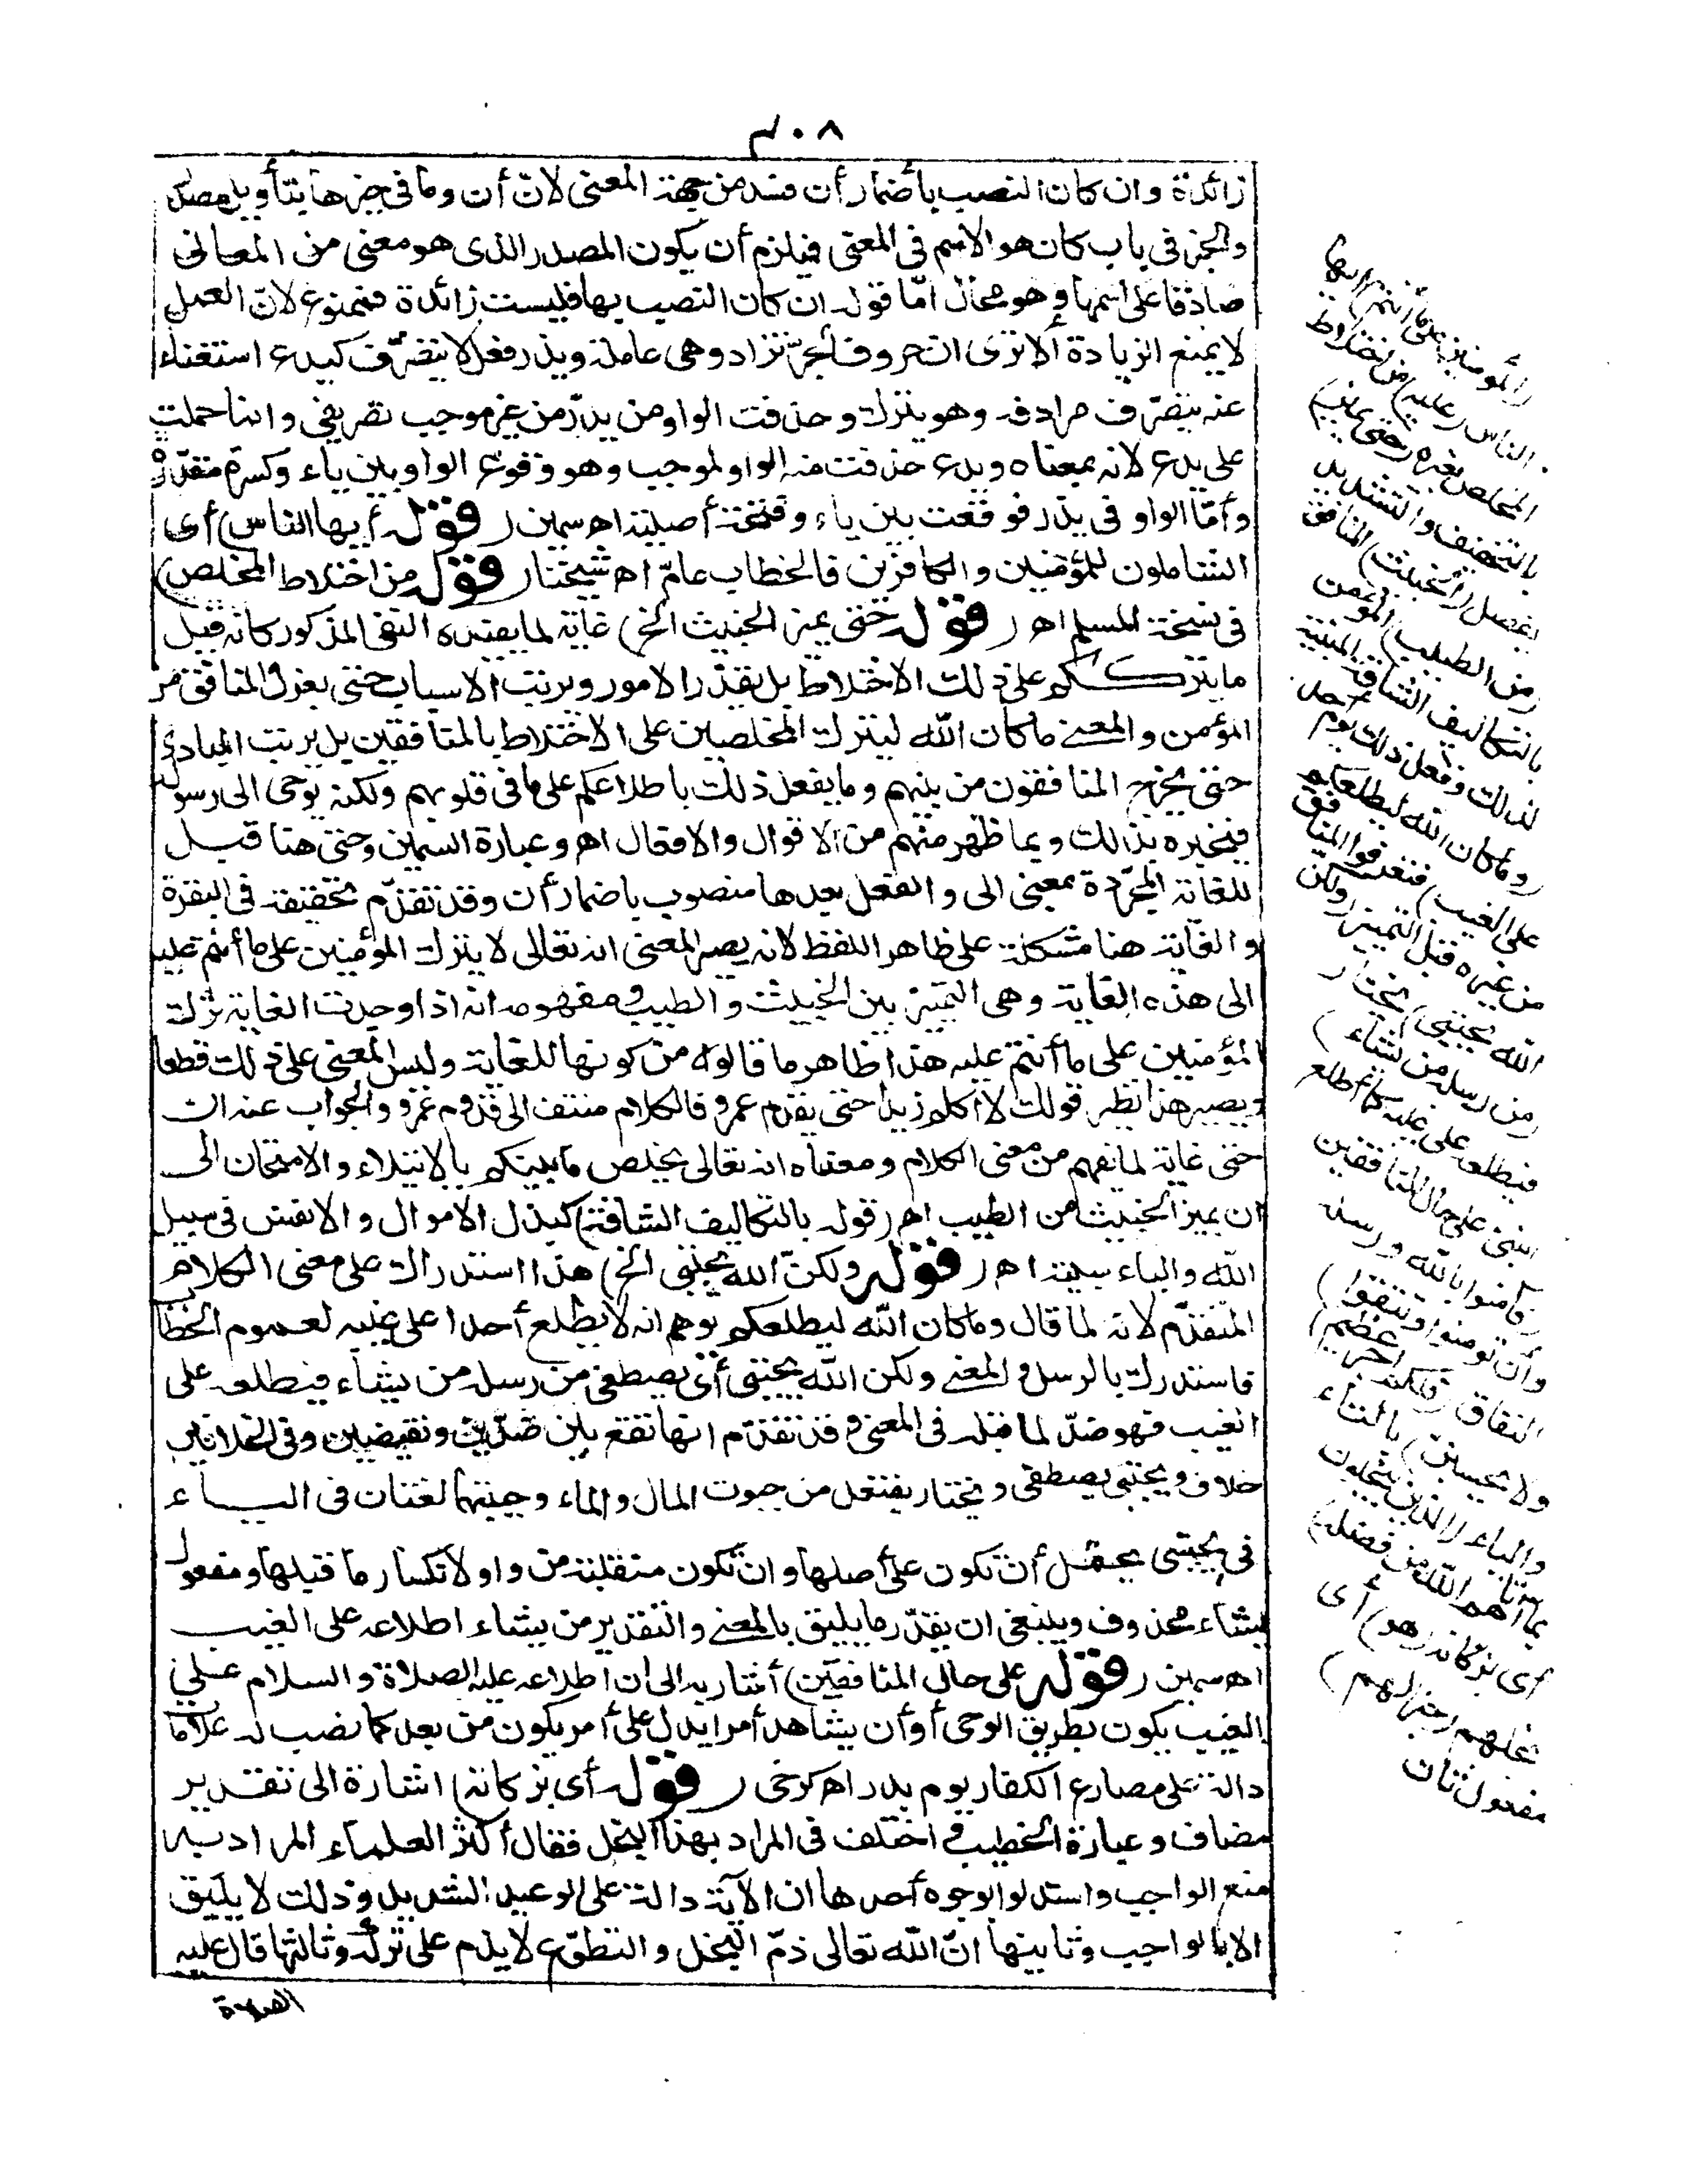 ٤٠٨
زائدة وان كان النصب بأضمار أن فسد من جهة المعنى لانّ أن وما في حيزها بتأويل مصدر
والخبر في باب كان هو الاسم في المعنى فيلزم أن يكون المصدر الذى هو معنى من المعانى
صادقا على اسمها وهو محال امّا قوله ان كان النصب بها فليست زائدة فممنوع لانّ العمل
لا يمنع الزيادة ألا ترى انّ حروف الجرّ تزاد وهى عاملة ويذر فعل لا يتصرّف كيدع استغناء
عنه بتصرّف مرادفه وهو يترك وحذفت الواو من يذر من غير موجب تصريفى وانما حملت
على يدع لانه بمعناه ويدع حذفت منه الواو لموجب وهو وقوع الواو بين ياء وكسرة مقدّرة
وأمّا الواو في يذر فوقعت بين ياء وفتحة أصلية اهـ سمين (قوله أيها الناس) أى
الشاملون للمؤمنين والكافرين فالخطاب عامّ اهـ شيخنا (قوله من اختلاط المخلص)
في نسخة المسلم اهـ (قوله حتى يميز الخبيث الخ) غاية لما يفيده النفى المذكور كانه قيل
ما يترككم على ذلك الاختلاط بل يقدّر الامور ويرتب الاسباب حتى يعزل المنافق من
المؤمن والمعنى ما كان الله ليترك المخلصين على الاختلاط بالمنافقين بل يرتب المبادى
حتى يخرج المنافقون من بينهم وما يفعل ذلك باطلاعكم على ما في قلوبهم ولكنه يوحى الى رسوله
فيخبره بذلك وبما ظهر منهم من الاقوال والافعال اهـ وعبارة السمين وحتى هنا قيل
للغاية المجرّدة بمعنى الى والفعل بعدها منصوب باضمار أن وقد تقدّم تحقيقه في البقرة
والغاية هنا مشكلة على ظاهر اللفظ لانه يصير المعنى انه تعالى لا يترك المؤمنين على ما أنتم عليه
الى هذه الغاية وهى التمييز بين الخبيث والطيب ومفهومه انه اذا وجدت الغاية ترك
المؤمنين على ما أنتم عليه هذا ظاهر ما قالوه من كونها للغاية وليس المعنى على ذلك قطعا
ويصير هذا نظير قولك لا أكلم زيدا حتى يقدم عمرو فالكلام منتف الى قدوم عمرو والجواب عنه انّ
حتى غاية لما يفهم من معنى الكلام ومعناه انه تعالى يخلص ما بينكم بالابتلاء والامتحان الى
ان يميز الخبيث من الطيب اهـ (قوله بالتكاليف الشاقة) كبذل الاموال والانفس في سبيل
الله والباء سببية اهـ (قوله ولكنّ الله يجتبى الخ) هذا استدراك على معنى الكلام
المتقدّم لانه لما قال وما كان الله ليطلعكم يوهم انه لا يطلع أحدا على غيبه لعموم الخطاب
فاستدرك بالرسل والمعنى ولكن الله يجتبى أى يصطفى من رسله من يشاء فيطلعه على
الغيب فهو ضدّ لما قبله في المعنى وقد تقدّم انها تقع بين ضدّين ونقيضين وفى الخلافين
خلاف ويجتبى يصطفى ويختار يفتعل من جبوت المال والماء وجبيتهما لغتان فى اليـاء
في يجتبى يحتمل أن تكون على أصلها وان تكون منقلبة من واو لانكسار ما قبلها ومفعول
يشاء محذوف وينبغى ان يقدّر ما يليق بالمعنى والتقدير من يشاء اطلاعه على الغيب
اهـ سمين (قوله على حال المنافقين) أشار به الى ان اطلاعه عليه الصلاة والسلام على
الغيب يكون بطريق الوحى أو أن يشاهد أمرا يدل على أمر يكون من بعد كما نصب له علاما
دالة على مصارع الكفار يوم بدر اهـ كرخى (قوله أى بزكاته) اشارة الى تقدير
مضاف وعبارة الخطيب واختلف في المراد بهذا البخل فقال أكثر العلماء المراد به
منع الواجب واستدلوا بوجوه أحدها ان الآية دالة على الوعيد الشديد وذلك لا يليق
الا بالواجب وثانيها انّ الله تعالى ذمّ البخل والتطوّع لا يذم على تركه وثالثها قال عليه
الصلاة
(المؤمنين على ما أنتم) ايها
الناس (عليه) من اختلاط
المخلص بغيره (حتى يميز)
بالتخفيف والتشديد
يفصل (الخبيث) المنافق
(من الطيب) المؤمن
بالتكاليف الشاقة المبينة
لذلك وفعل ذلك يوم أحد
(وما كان الله ليطلعكم
على الغيب) فتعرفوا المنافق
من غيره قبل التمييز (ولكن
الله يجتبى) يختار
(من رسله من يشاء)
فيطلعه على غيبه كما أطلع
النبى على حال المنافقين
(فآمنوا بالله ورسله
وان تؤمنوا وتتقوا)
النفاق (فلكم أجر عظيم)
ولا تحسبن) بالتاء
والياء (الذين يبخلون
بما آتاهم الله من فضله)
أى بزكاته (هو) أى
بخلهم (خيرا لهم)
مفعول ثان